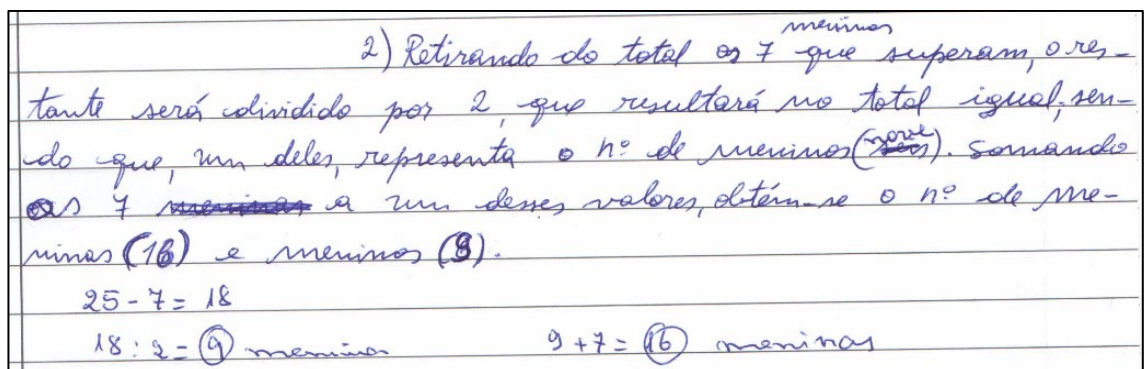 meninas
2) Retirando do total as 7 que superam, o res-
tante será dividido por 2, que resultará no total igual, sen-
do que, um deles, representa o nº de meninos (nove). Somando
as 7 meninas a um desses valores, obtém-se o nº de me-
ninas (16) e meninos (9).
25 - 7 = 18
18 : 2 = 9 meninos 9 + 7 = 16 meninas